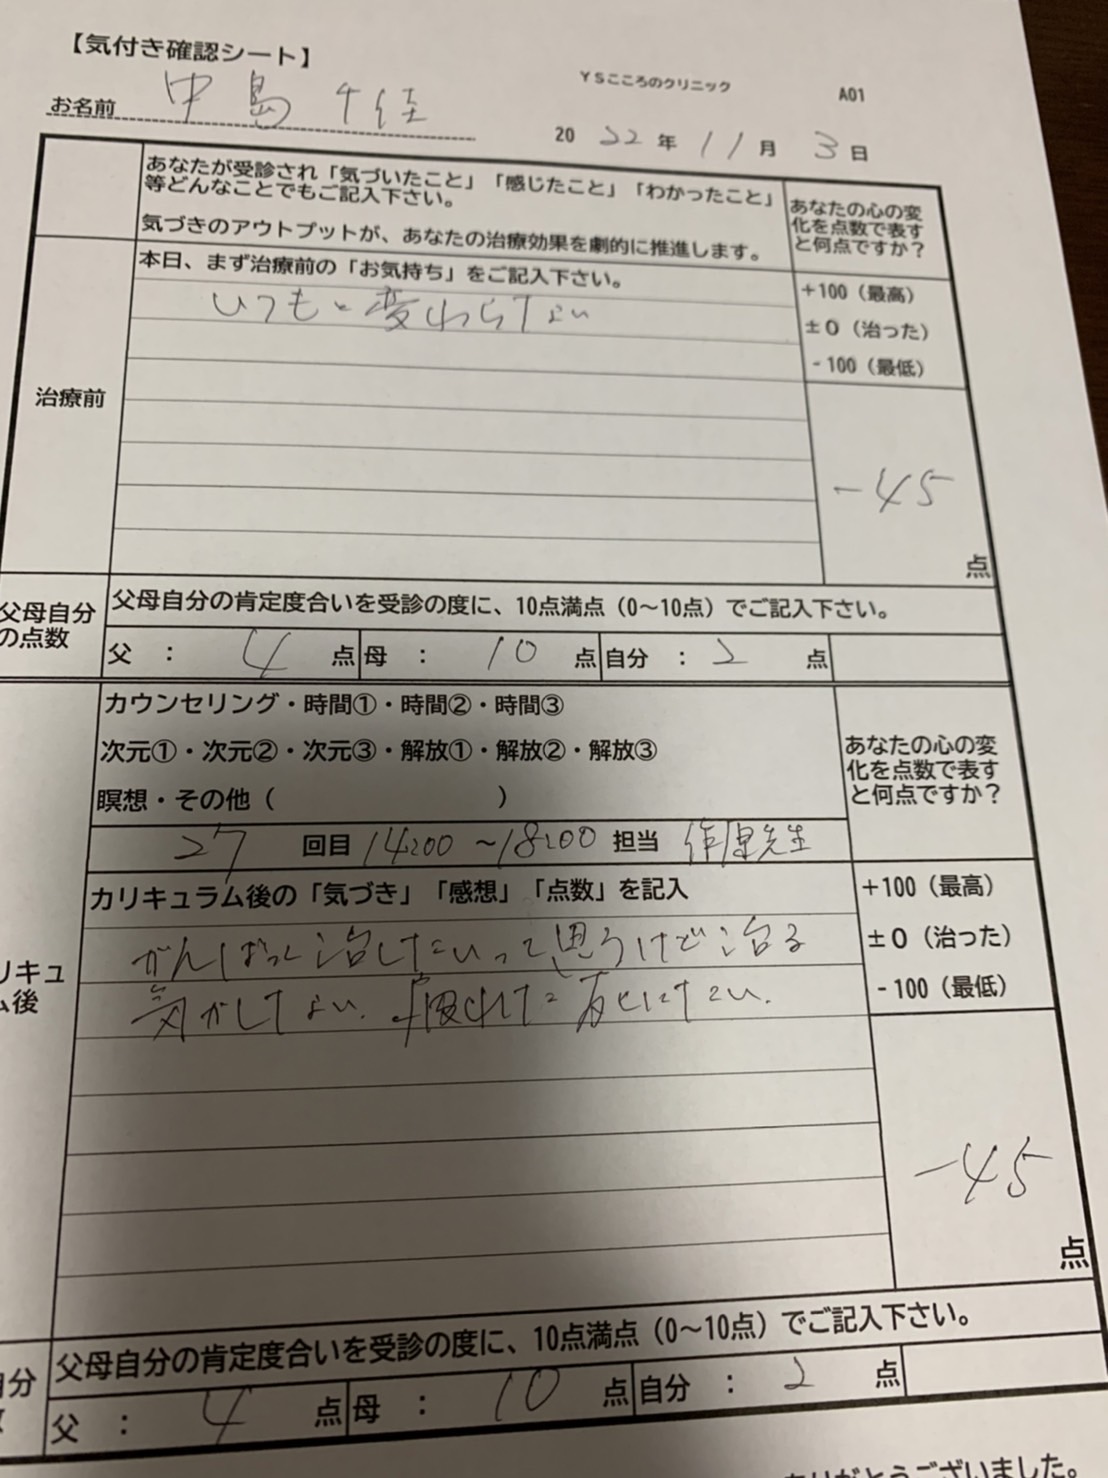 【気付き確認シート】
YSこころのクリニック
A01
お名前 中島 千佳
2022年11月3日
あなたが受診され「気づいたこと」「感じたこと」「わかったこと」
等どんなことでもご記入下さい。
気づきのアウトプットが、あなたの治療効果を劇的に推進します。
あなたの心の変
化を点数で表す
と何点ですか？
治療前
本日、まず治療前の「お気持ち」をご記入下さい。
いつもと変わらない
+100（最高）
±0（治った）
-100（最低）
-45
点
父母自分
の点数
父母自分の肯定度合いを受診の度に、10点満点（0～10点）でご記入下さい。
父 ： 4 点 母 ： 10 点 自分 ： 2 点
カウンセリング・時間①・時間②・時間③
次元①・次元②・次元③・解放①・解放②・解放③
瞑想・その他（ ）
27 回目 14:00 ～18:00 担当 作原先生
あなたの心の変
化を点数で表す
と何点ですか？
リキュ
ム後
カリキュラム後の「気づき」「感想」「点数」を記入
がんばって治したいって思うけど治る
気がしない。疲れた。死にたい。
+100（最高）
±0（治った）
-100（最低）
-45
点
自分
父母自分の肯定度合いを受診の度に、10点満点（0～10点）でご記入下さい。
父 ： 4 点 母 ： 10 点 自分 ： 2 点
ありがとうございました。